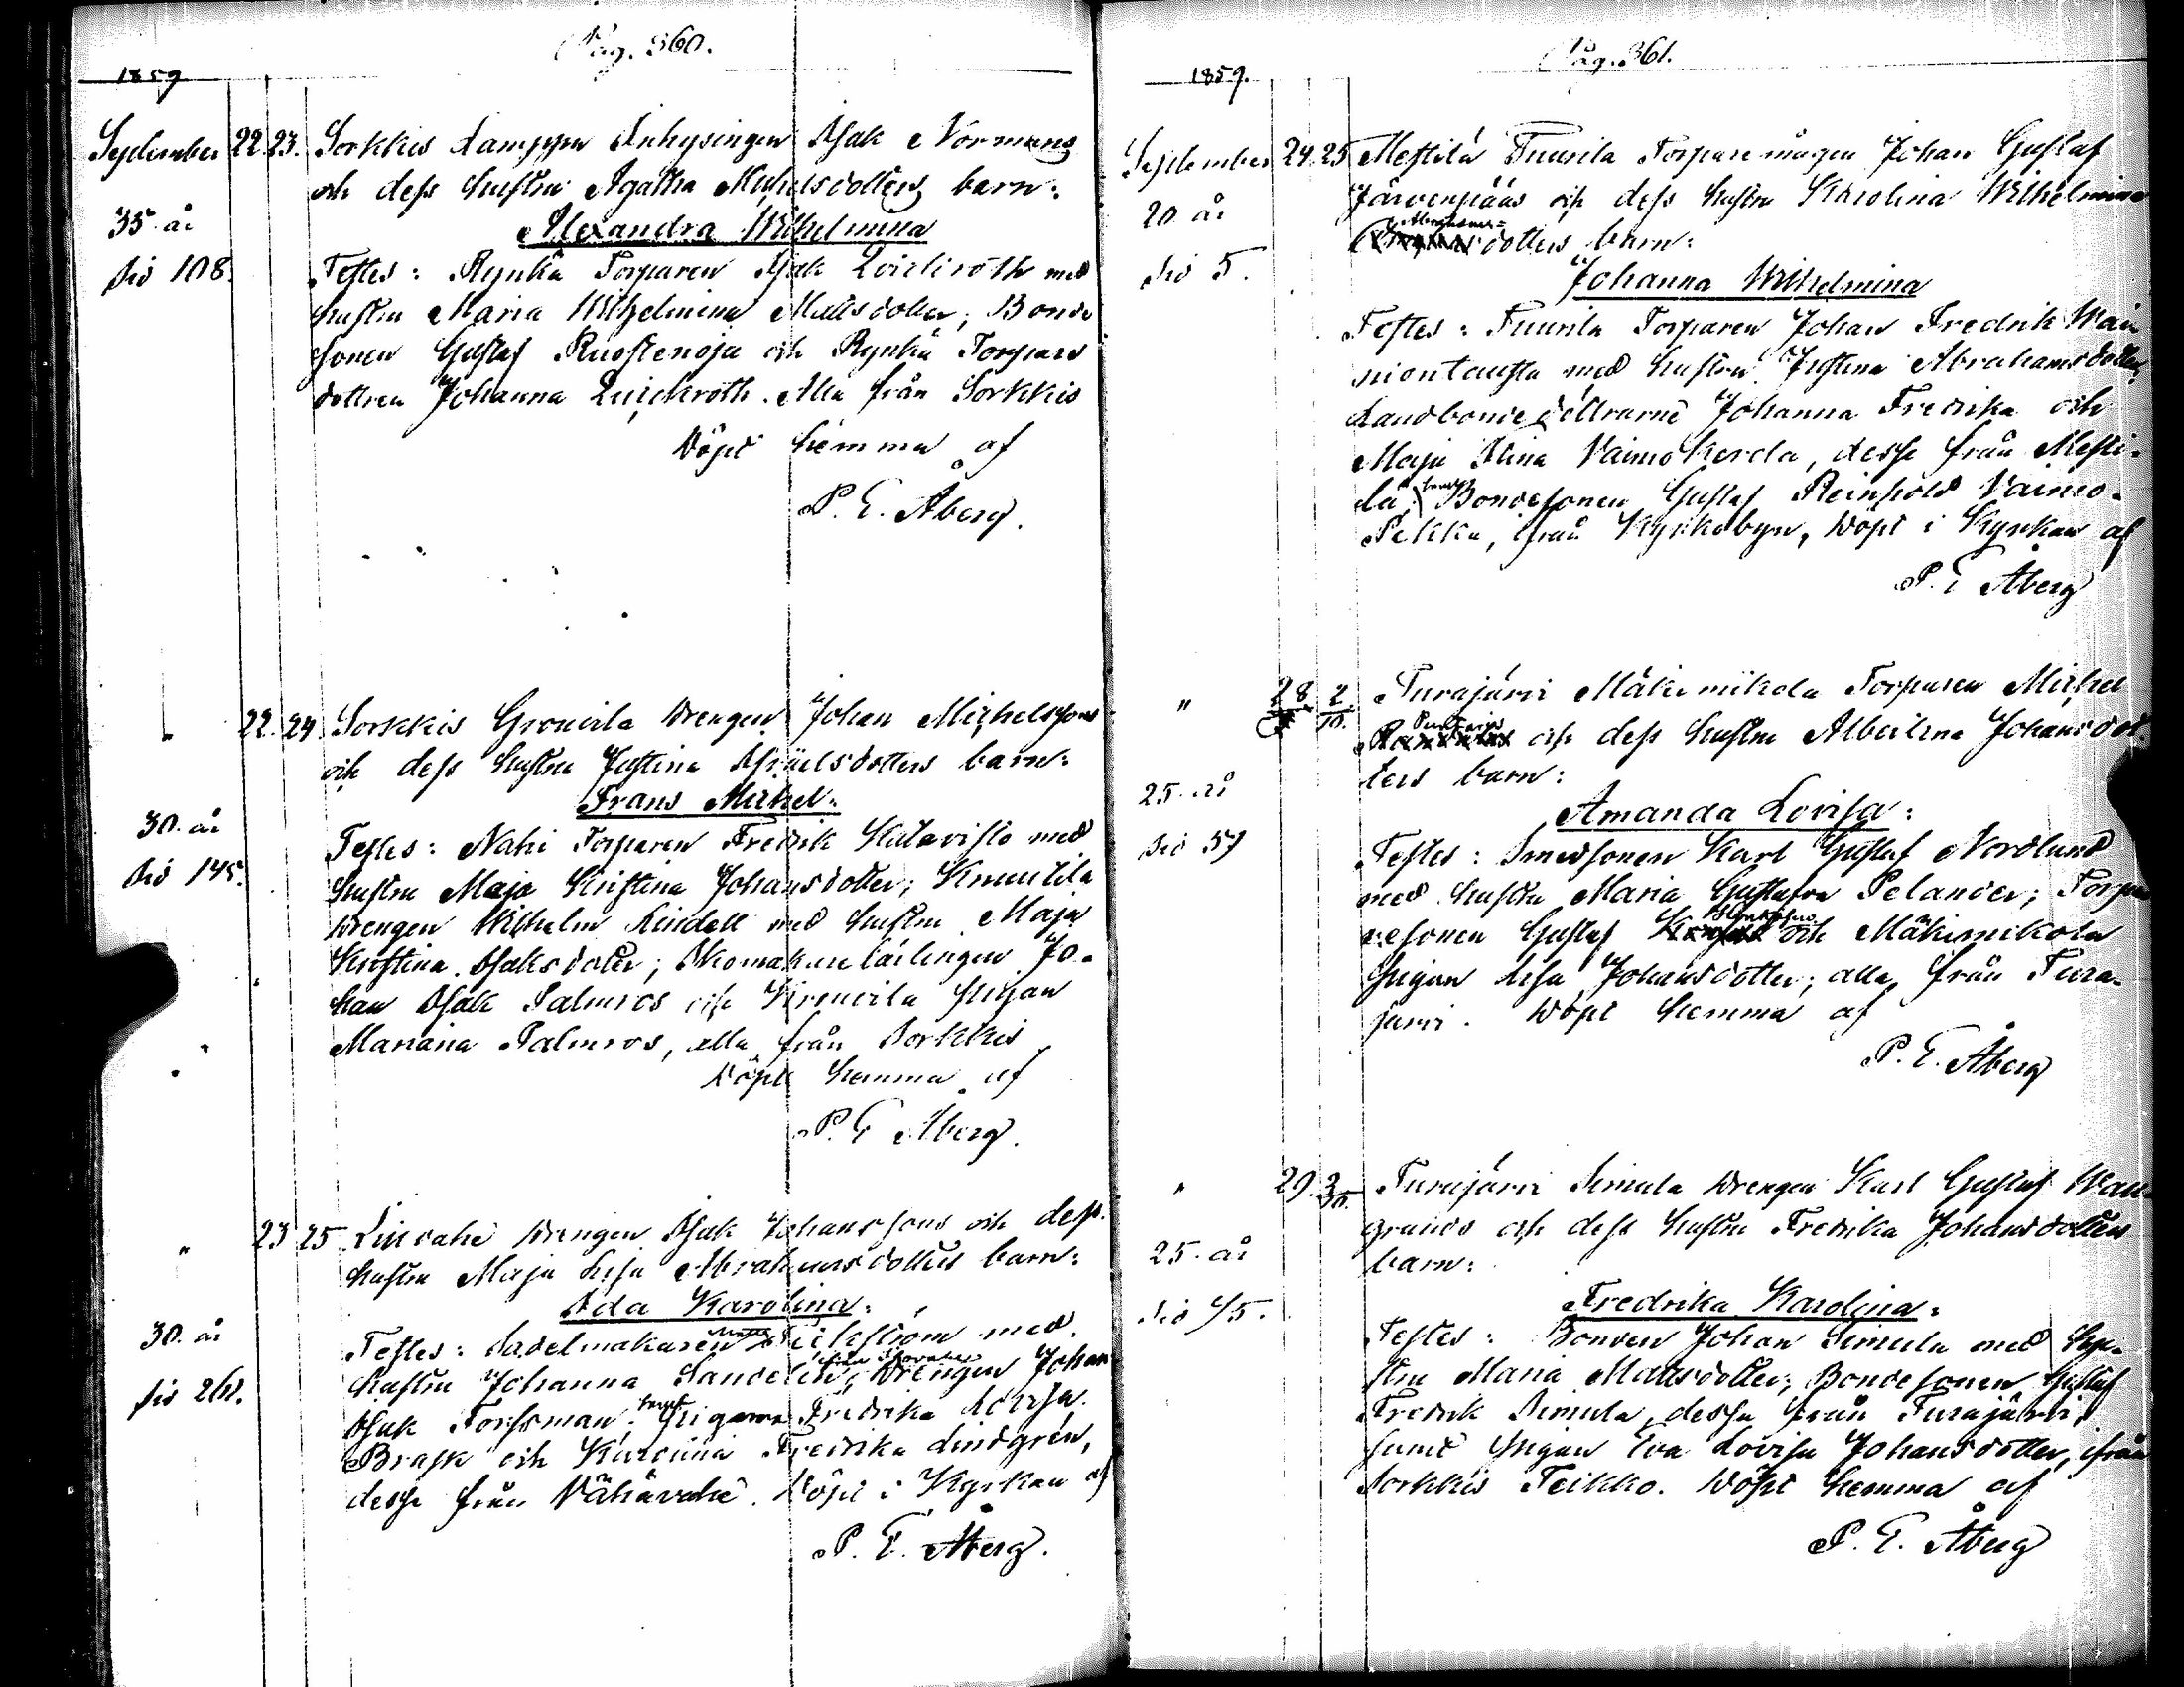 Pag. 360.
1859
September 22. 23. Sorkkis Lamppu Inhysingen Isak Normans
och dess hustru Agatha Michelsdotters barn:
35 år
Alexandra Wilhelmina
Sid 108.
Testes: Rynkä Torparen Isak Qvickroth med
hustru Maria Wilhelmina Mattsdotter; Bonde
sonen Gustaf Ruostenoja och Rynkä Torpare
dottren Johanna Quickroth. Alla från Sorkkis
Döpt hemma af
P. E. Åberg.
22. 24. Sorkkis drengen Johan Michelssons
och dess hustru Justina Israelsdotters barn:
Frans Michel:
30. år
Sid 145.
Testes: Nahi Torparen Fredrik Katavisto med
hustru Maja Kristina Johansdotter; Knuutila
drengen Wilhelm Lindell med hustru Maja
Kristina Isaksdotter; Skomakare lärlingen Jo-
han Isak Palmros och pigan
Mariana Palmros, alla från Sorkkis
Döpt hemma af
P. E. Åberg.
" 23 25 drengen Isak Johanssons och dess
hustru Maja Lisa Abrahamsdotters barn:
Ada Karolina:
30. år
Sid 261.
Testes: Sadelmakaren med
hustru Johanna Sandelin, Drengen Johan
Isak Forssman, samt Pigorna Fredrika Lovisa
Brask och Karolina Fredrika Lindgrén,
desse från Vähävahe. Döpt i Kyrkan af
P. E. Åberg.
Pag. 361.
1859.
September 24. 25 Mestilä Tuurila Torparemågen Johan Gustaf
Järvenpääs och dess hustru Karolina Wilhelmina
20 år
Abrahams-
dotters barn:
Sid 5.
Johanna Wilhelmina
Testes: Tuurila Torparen Johan Fredrik Wai-
niontausta med hustru Justina Abrahamsdotter,
Landbondedöttrarne Johanna Fredrika och
Maja Stina Vainiokerola, desse från Mesti-
lä; samt Bondesonen Gustaf Reinhold Vainio-
Pekka, från Kyrkobyn, döpt i Kyrkan af
P. E. Åberg
" 28 2/10. Turajärvi Mäkimikola Torparen Michel
och dess hustru Albertina Johansdot-
ters barn:
25. år
Amanda Lovisa:
Sid 57
Testes: Smedsonen Karl Gustaf Nordlund
med hustru Maria Gustafva Pelander; Torpa
resonen Gustaf och Mäkimikola
pigan Lisa Johansdotter; alla från Tura-
järvi. Döpt hemma af
P. E. Åberg
" 29. 3/10. Turajärvi Simula drengen Karl Gustaf Wan-
grunds och dess hustru Fredrika Johansdotters
25. år
barn:
Fredrika Karolina:
Testes: Bonden Johan Simula med hu-
stru Maria Mattsdotter; Bondesonen Gustaf
Fredrik Simula, desse från Turajärvi,
samt pigan Eva Lovisa Johansdotter, ifrån
Sorkkis Teikko. Döpt hemma af
P. E. Åberg